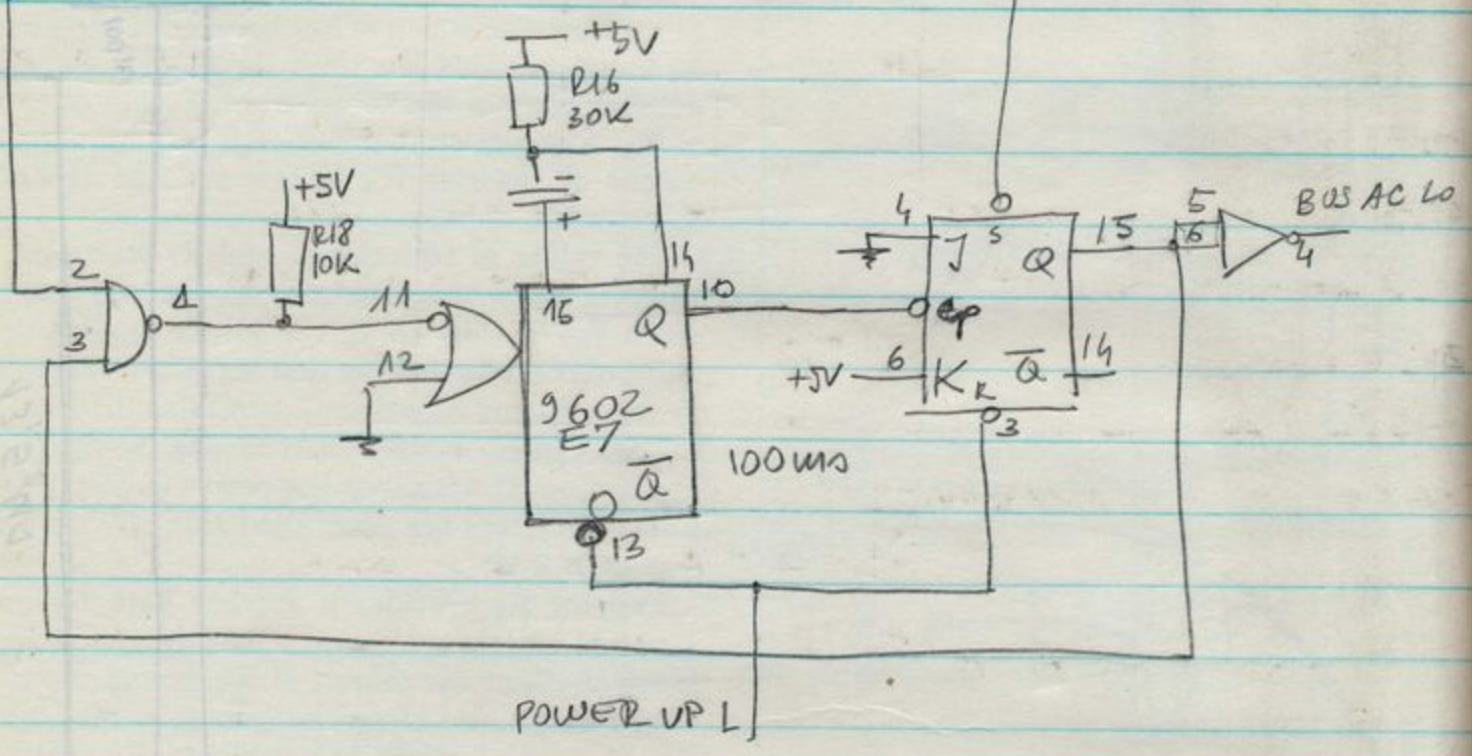 +5V
R16
30K
+5V
R18
10K
-
+
2
3
1
11
12
14
15
Q
10
9602
E7
Q̅
13
100ms
4
J
S
Q
15
cp
+5V
6
K
R
Q̅
14
3
5
6
4
BUS AC LO
POWER UP L